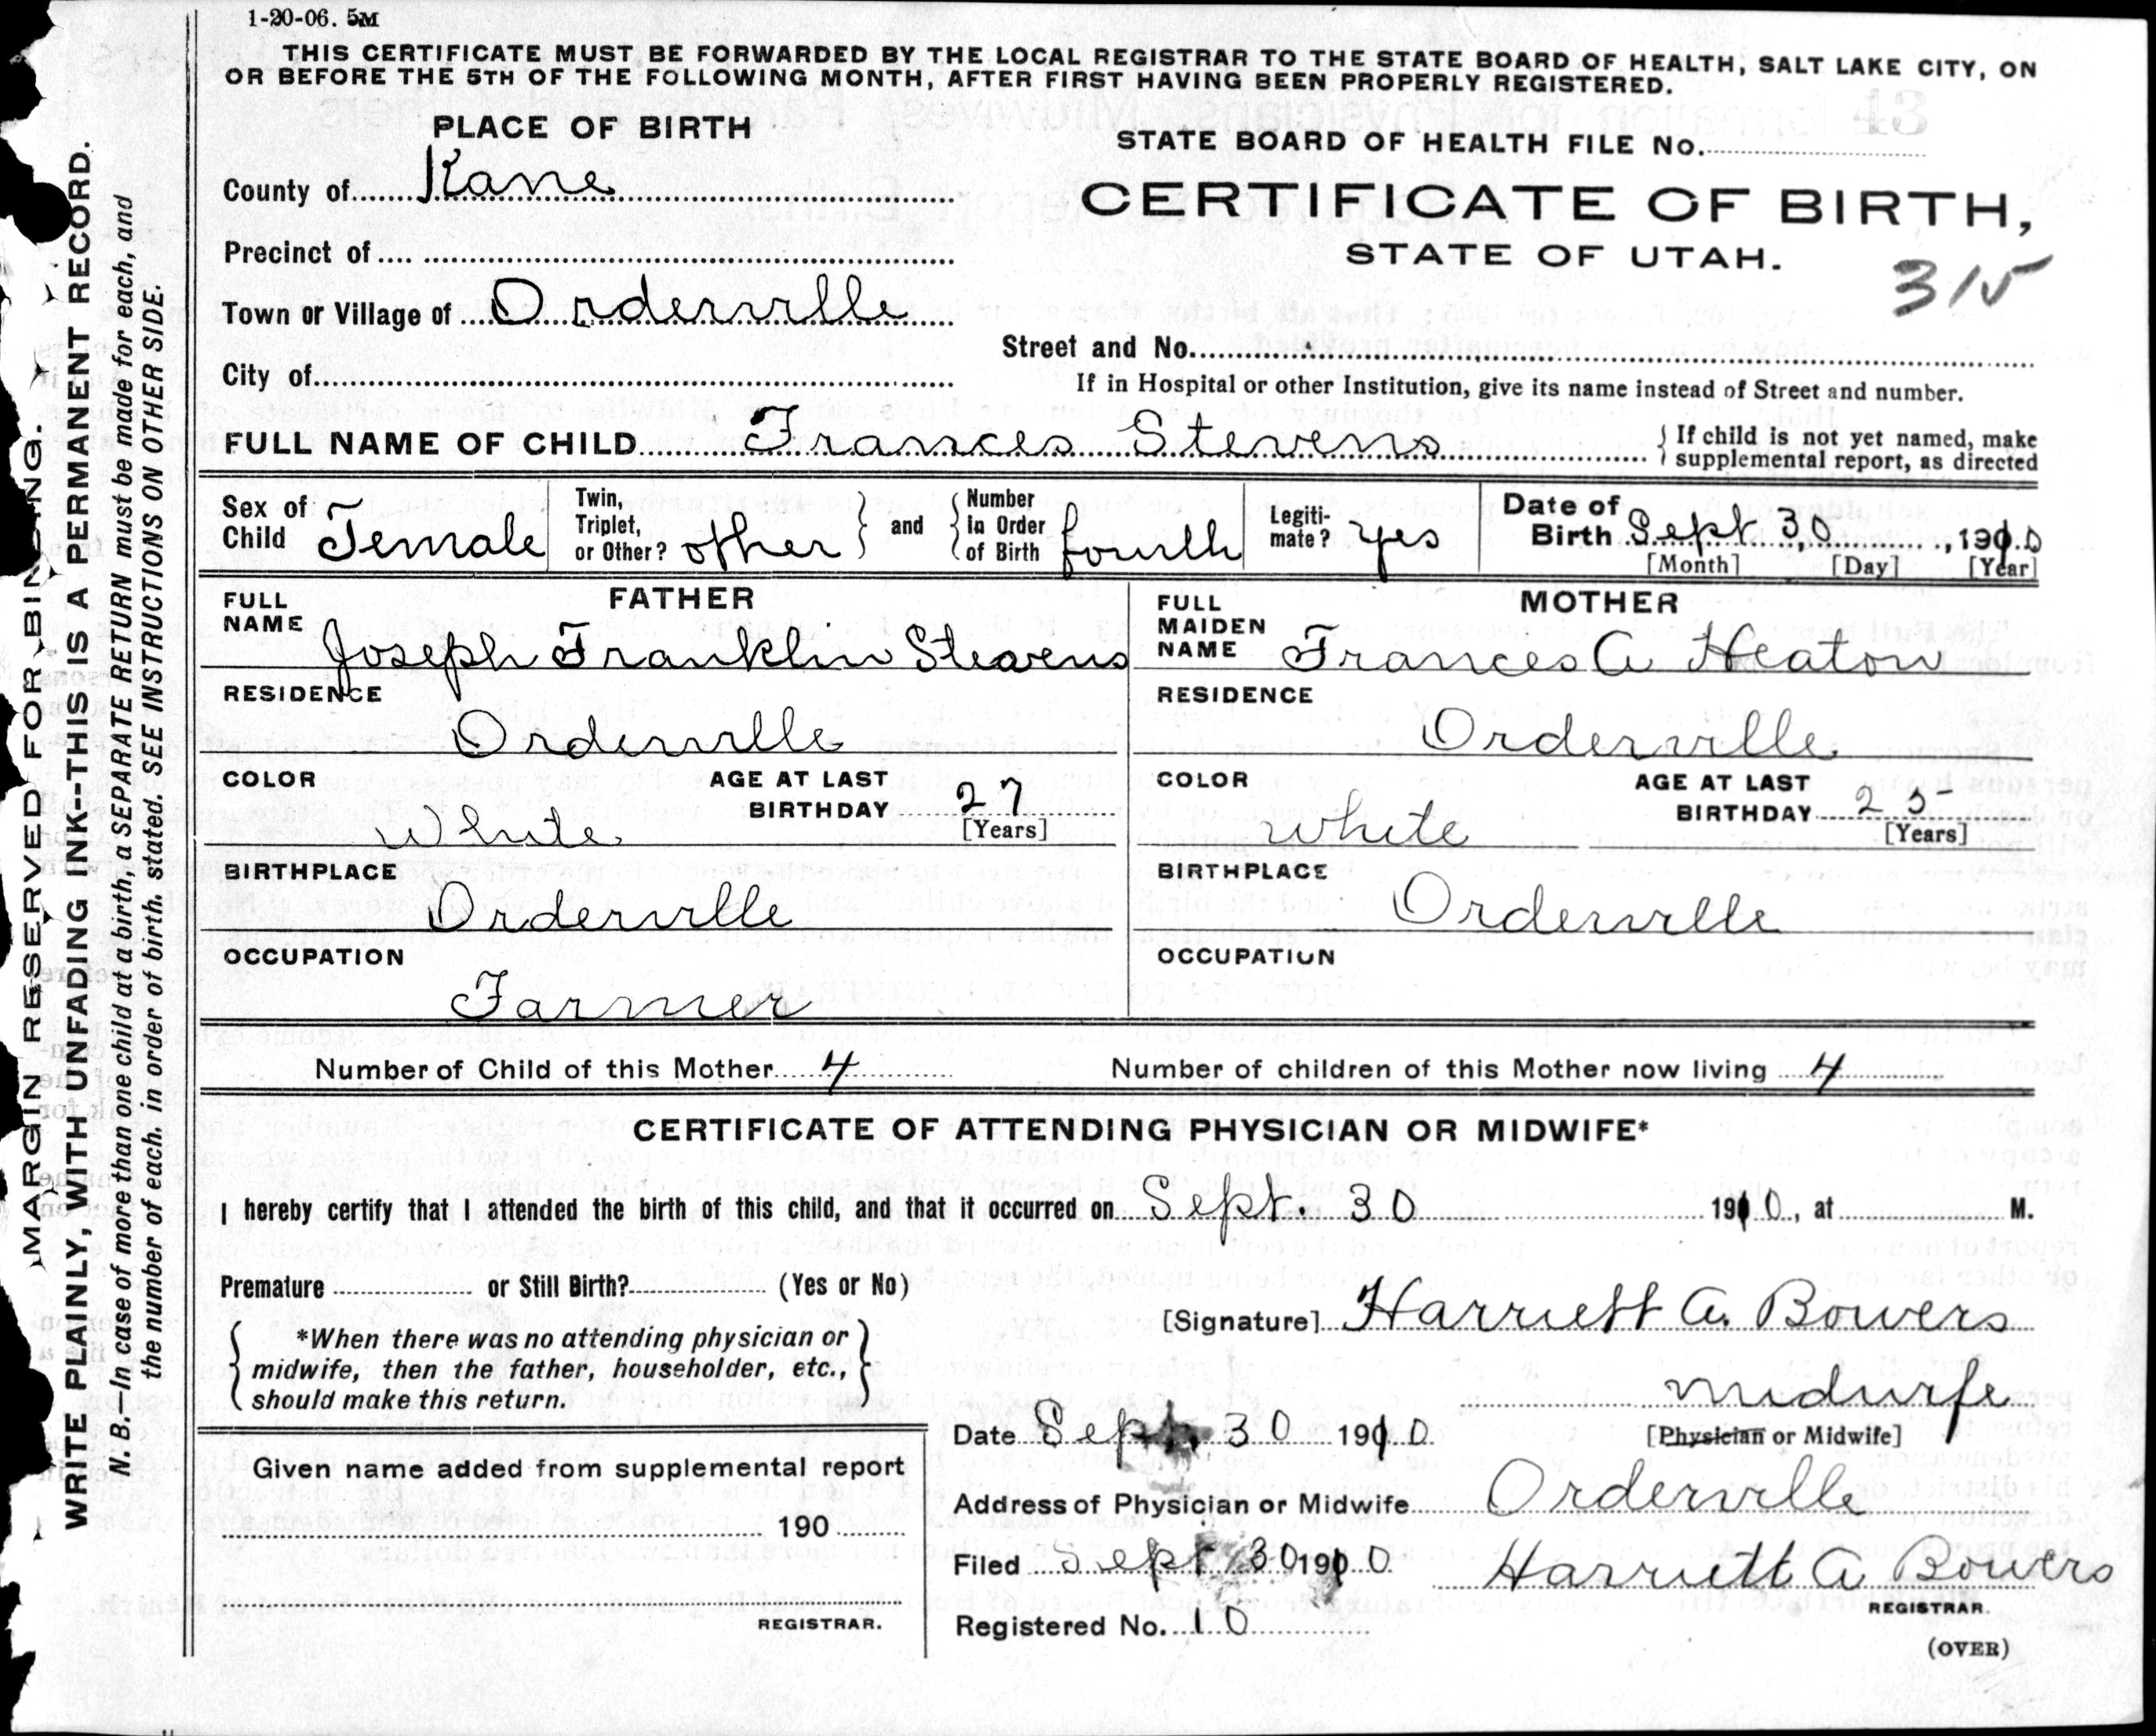 1-20-06. 5M
THIS CERTIFICATE MUST BE FORWARDED BY THE LOCAL REGISTRAR TO THE STATE BOARD OF HEALTH, SALT LAKE CITY, ON
OR BEFORE THE 5TH OF THE FOLLOWING MONTH, AFTER FIRST HAVING BEEN PROPERLY REGISTERED.
PLACE OF BIRTH
County of Kane
Precinct of
Town or Village of Orderville
City of
STATE BOARD OF HEALTH FILE No.
CERTIFICATE OF BIRTH,
STATE OF UTAH.
315
Street and No.
If in Hospital or other Institution, give its name instead of Street and number.
FULL NAME OF CHILD Frances Stevens { If child is not yet named, make
supplemental report, as directed
Sex of Child Female
Twin, Triplet, or Other? other } and { Number in Order of Birth fourth
Legiti-mate? yes
Date of Birth Sept 30, 1910
[Month] [Day] [Year]
FATHER
FULL NAME Joseph Franklin Stevens
RESIDENCE
Orderville
COLOR White AGE AT LAST BIRTHDAY 27 [Years]
BIRTHPLACE
Orderville
OCCUPATION
Farmer
MOTHER
FULL MAIDEN NAME Frances A Heaton
RESIDENCE
Orderville
COLOR White AGE AT LAST BIRTHDAY 25 [Years]
BIRTHPLACE
Orderville
OCCUPATION
Number of Child of this Mother 4 Number of children of this Mother now living 4
CERTIFICATE OF ATTENDING PHYSICIAN OR MIDWIFE*
I hereby certify that I attended the birth of this child, and that it occurred on Sept. 30 1910, at M.
Premature or Still Birth? (Yes or No)
*When there was no attending physician or
midwife, then the father, householder, etc.,
should make this return.
[Signature] Harriett A. Bowers
midwife
[Physician or Midwife]
Date Sept. 30 1910
Address of Physician or Midwife Orderville
Filed Sept 30 1910 Harriett A Bowers
REGISTRAR.
Registered No. 10
(OVER)
Given name added from supplemental report
190
REGISTRAR.
MARGIN RESERVED FOR BINDING.
WRITE PLAINLY, WITH UNFADING INK--THIS IS A PERMANENT RECORD.
N. B.—In case of more than one child at a birth, a SEPARATE RETURN must be made for each, and
the number of each, in order of birth, stated. SEE INSTRUCTIONS ON OTHER SIDE.